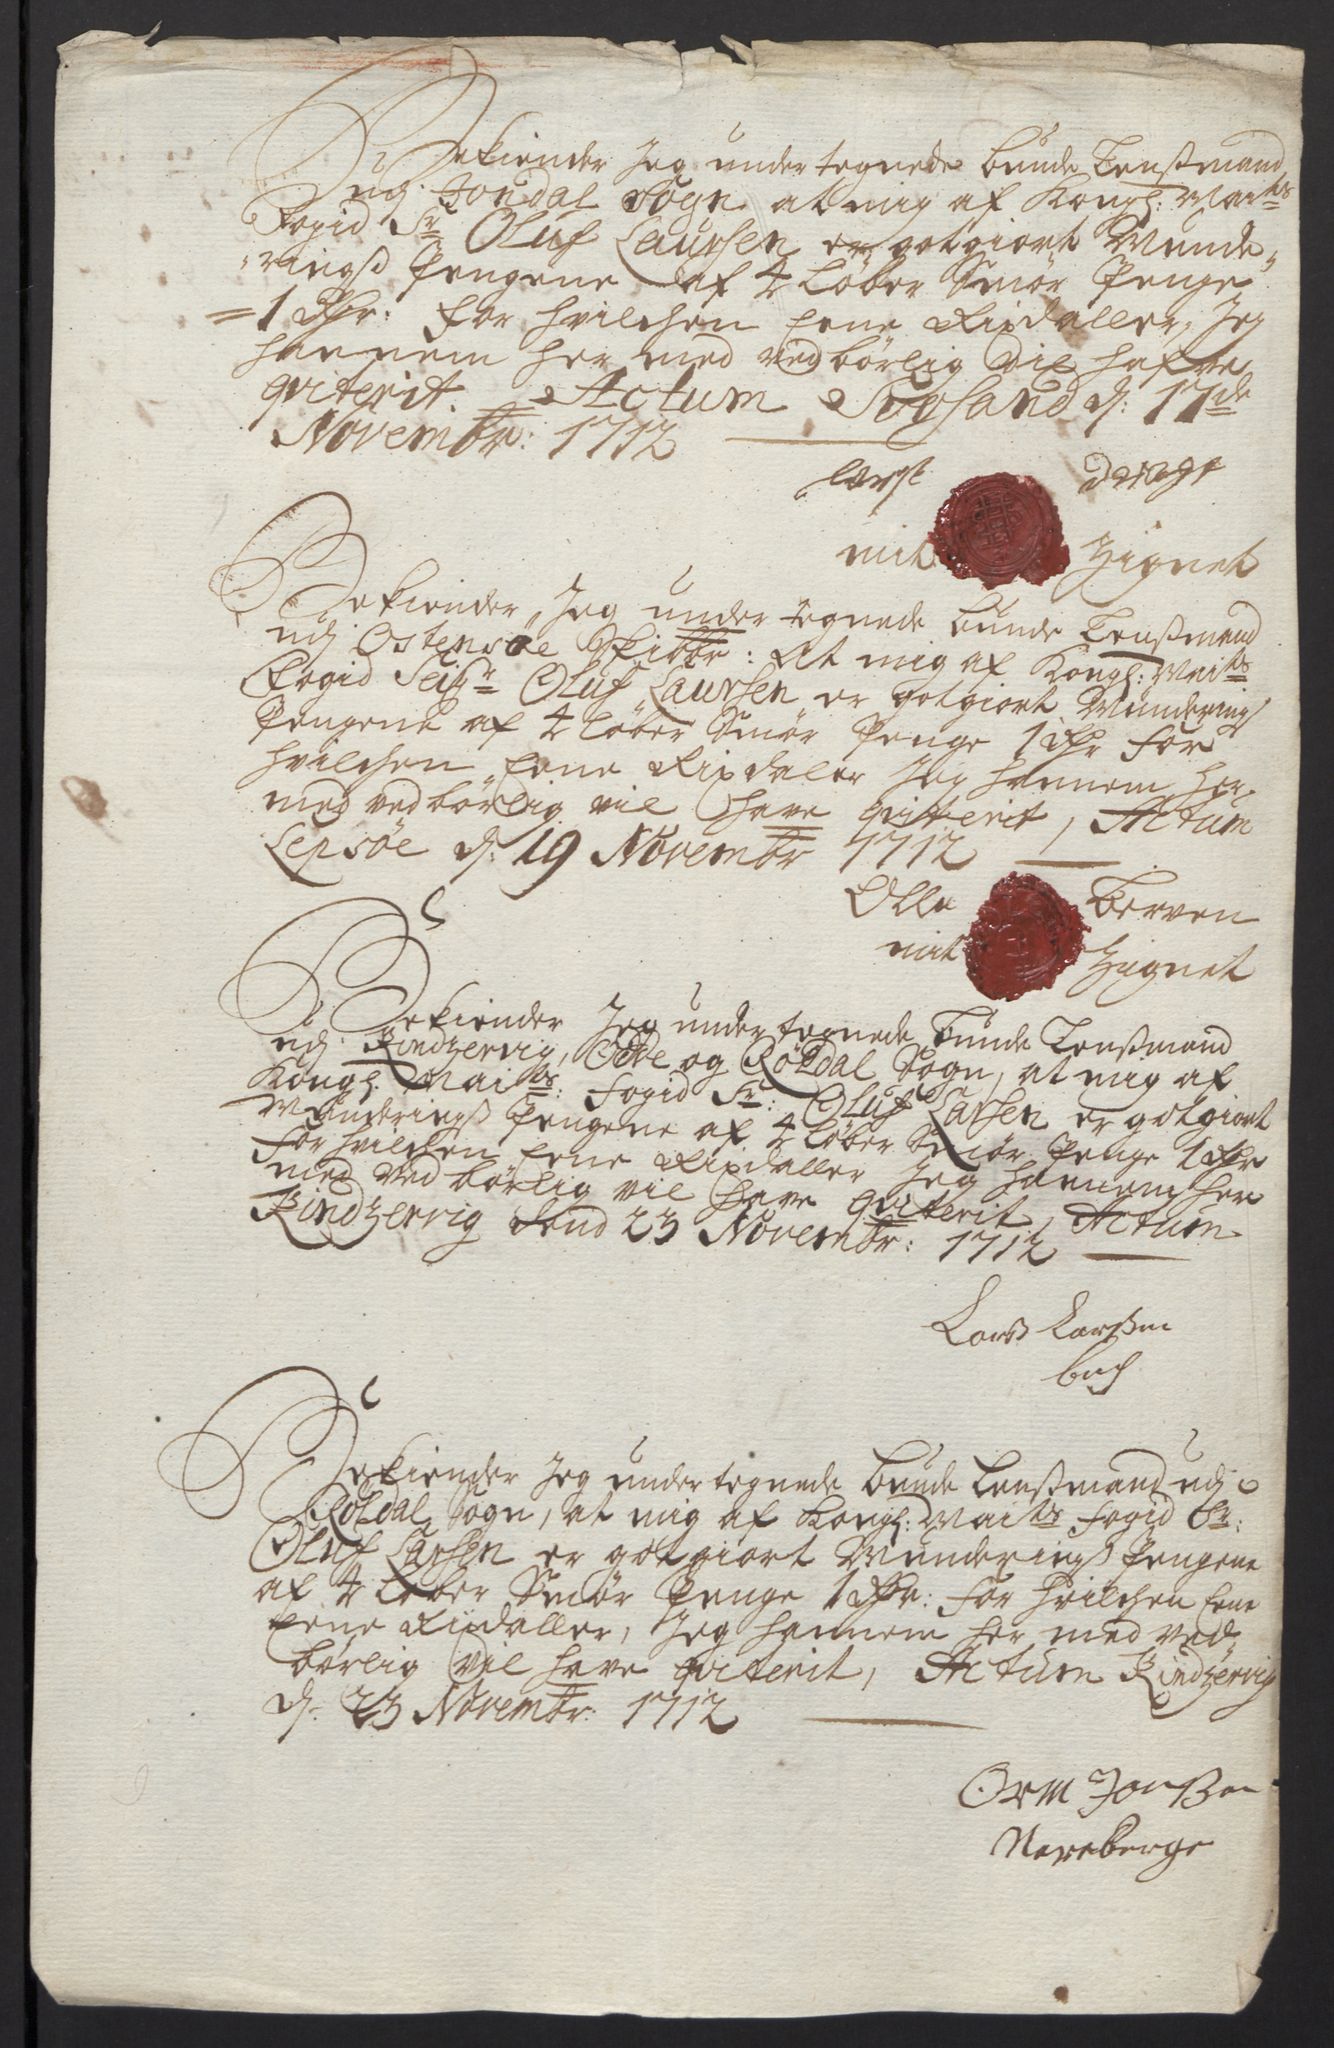 Bekiender Jeg under tegnede bunde Lensßmand
udj Jondal Sogn at mig af Kongl: Maits
Fogid Sr Oluf Laursen er gotgiort Munde-
-ringß Pengene af 4 Løber Smør Penge
1 Rdr: for hvilchen Eene Rixdaller, Jeg
hannem her med vedbørlig vil hafve
qviterit. Actum d: 17de
Novembr: 1712
mit Zignet
Bekiender Jeg under tegnede bunde Lensßmand
udj Ostensøe Skibbr: At mig af Kongl: Maits
Fogid Seigr Oluf Laursen er gotgiort Munderings
Pengene af 4 Løber Smør Penge 1 Rdr for
hvilchen Eene Rixdaler Jeg hannem her
med vedbørlig vil have qvitterit, Actum
Lepsøe d: 19 Novembr 1712
Olle Berven
mit Zignet
Bekiender Jeg under tegnede bunde Lensßmand
udj Kindzervig, Odde og Røldal Sogn, at mig af
Kongl: Maits: Fogid Sr: Oluf Larsen er gotgiort
Munderingß Pengene af 4 Løber Smør Penge 1 Rdr
for hvilchen Eene Rixdaller Jeg hannem her
med vedbørlig vil have qviterit, Actum
Kindzervig dend 23 Novembr: 1712
Larß Larßen
Bekiender Jeg under tegnede bunde Lensßmand udj
Røldal Sogn, at mig af Kongl: Maits Fogid Sr:
Oluf Larsen er gotgiort Munderingß Pengene
af 4 Løber Smør Penge 1 Rdr: for hvilchen Eene
Eene Rixdaller, Jeg hannem her med ved
børlig vil have qviterit, Actum Kindzervig
d: 23 Novembr: 1712
Orm Jonßen
Nereberge